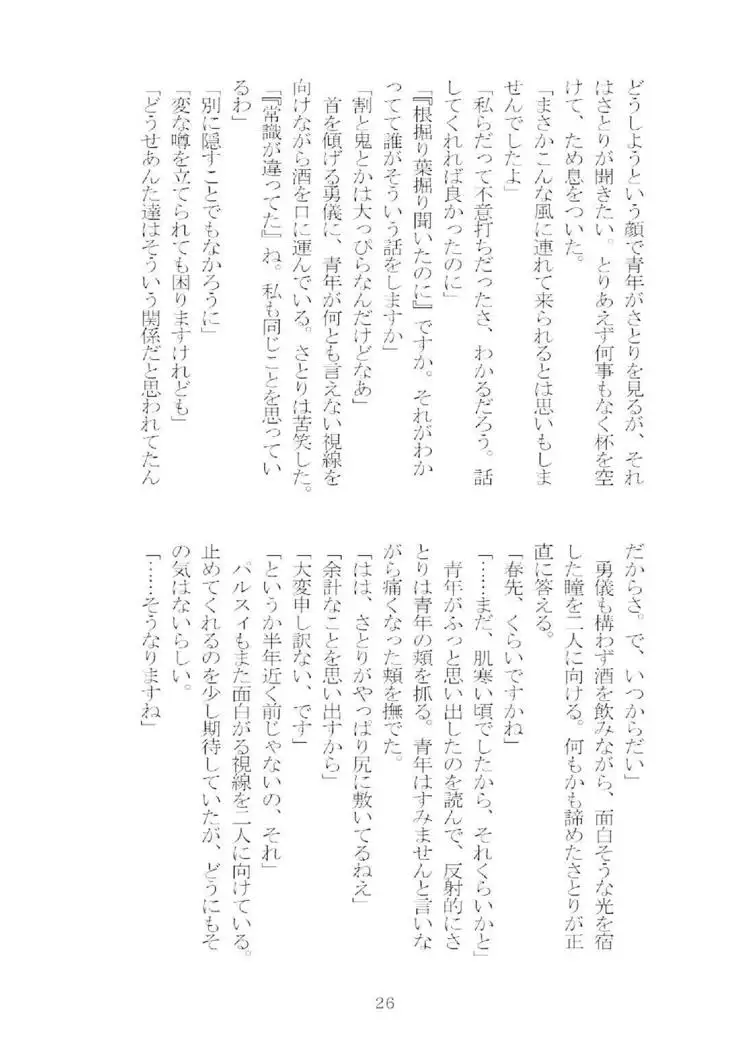 どうしようという顔で青年がさとりを見るが、それ
はさとりが聞きたい。とりあえず何事もなく杯を空
けて、ため息をついた。
「まさかこんな風に連れて来られるとは思いもしま
せんでしたよ」
「私らだって不意打ちだったさ、わかるだろう。話
してくれれば良かったのに」
「『根掘り葉掘り聞いたのに』ですか。それがわか
ってて誰がそういう話をしますか」
「割と鬼とかは大っぴらなんだけどなあ」
首を傾げる勇儀に、青年が何とも言えない視線を
向けながら酒を口に運んでいる。さとりは苦笑した。
「『常識が違ってた』ね。私も同じことを思ってい
るわ」
「別に隠すことでもなかろうに」
「変な噂を立てられても困りますけれども」
「どうせあんた達はそういう関係だと思われてたん
だからさ。で、いつからだい」
勇儀も構わず酒を飲みながら、面白そうな光を宿
した瞳を二人に向ける。何もかも諦めたさとりが正
直に答える。
「春先、くらいですかね」
「……まだ、肌寒い頃でしたから、それくらいかと」
青年がふっと思い出したのを読んで、反射的にさ
とりは青年の頬を抓る。青年はすみませんと言いな
がら痛くなった頬を撫でた。
「はは、さとりがやっぱり尻に敷いてるねえ」
「余計なことを思い出すから」
「大変申し訳ない、です」
「というか半年近く前じゃないの、それ」
パルスィもまた面白がる視線を二人に向けている。
止めてくれるのを少し期待していたが、どうにもそ
の気はないらしい。
「……そうなりますね」
26